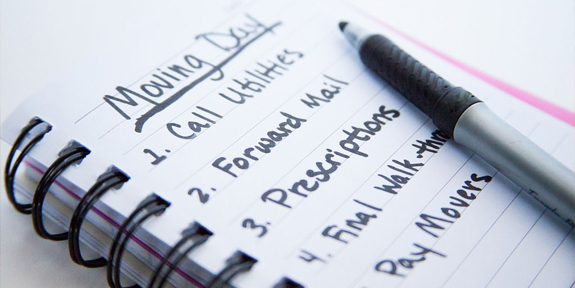 Moving Day
1. Call Utilities
2. Forward Mail
3. Prescriptions
4. Final Walk-thr
Pay Movers